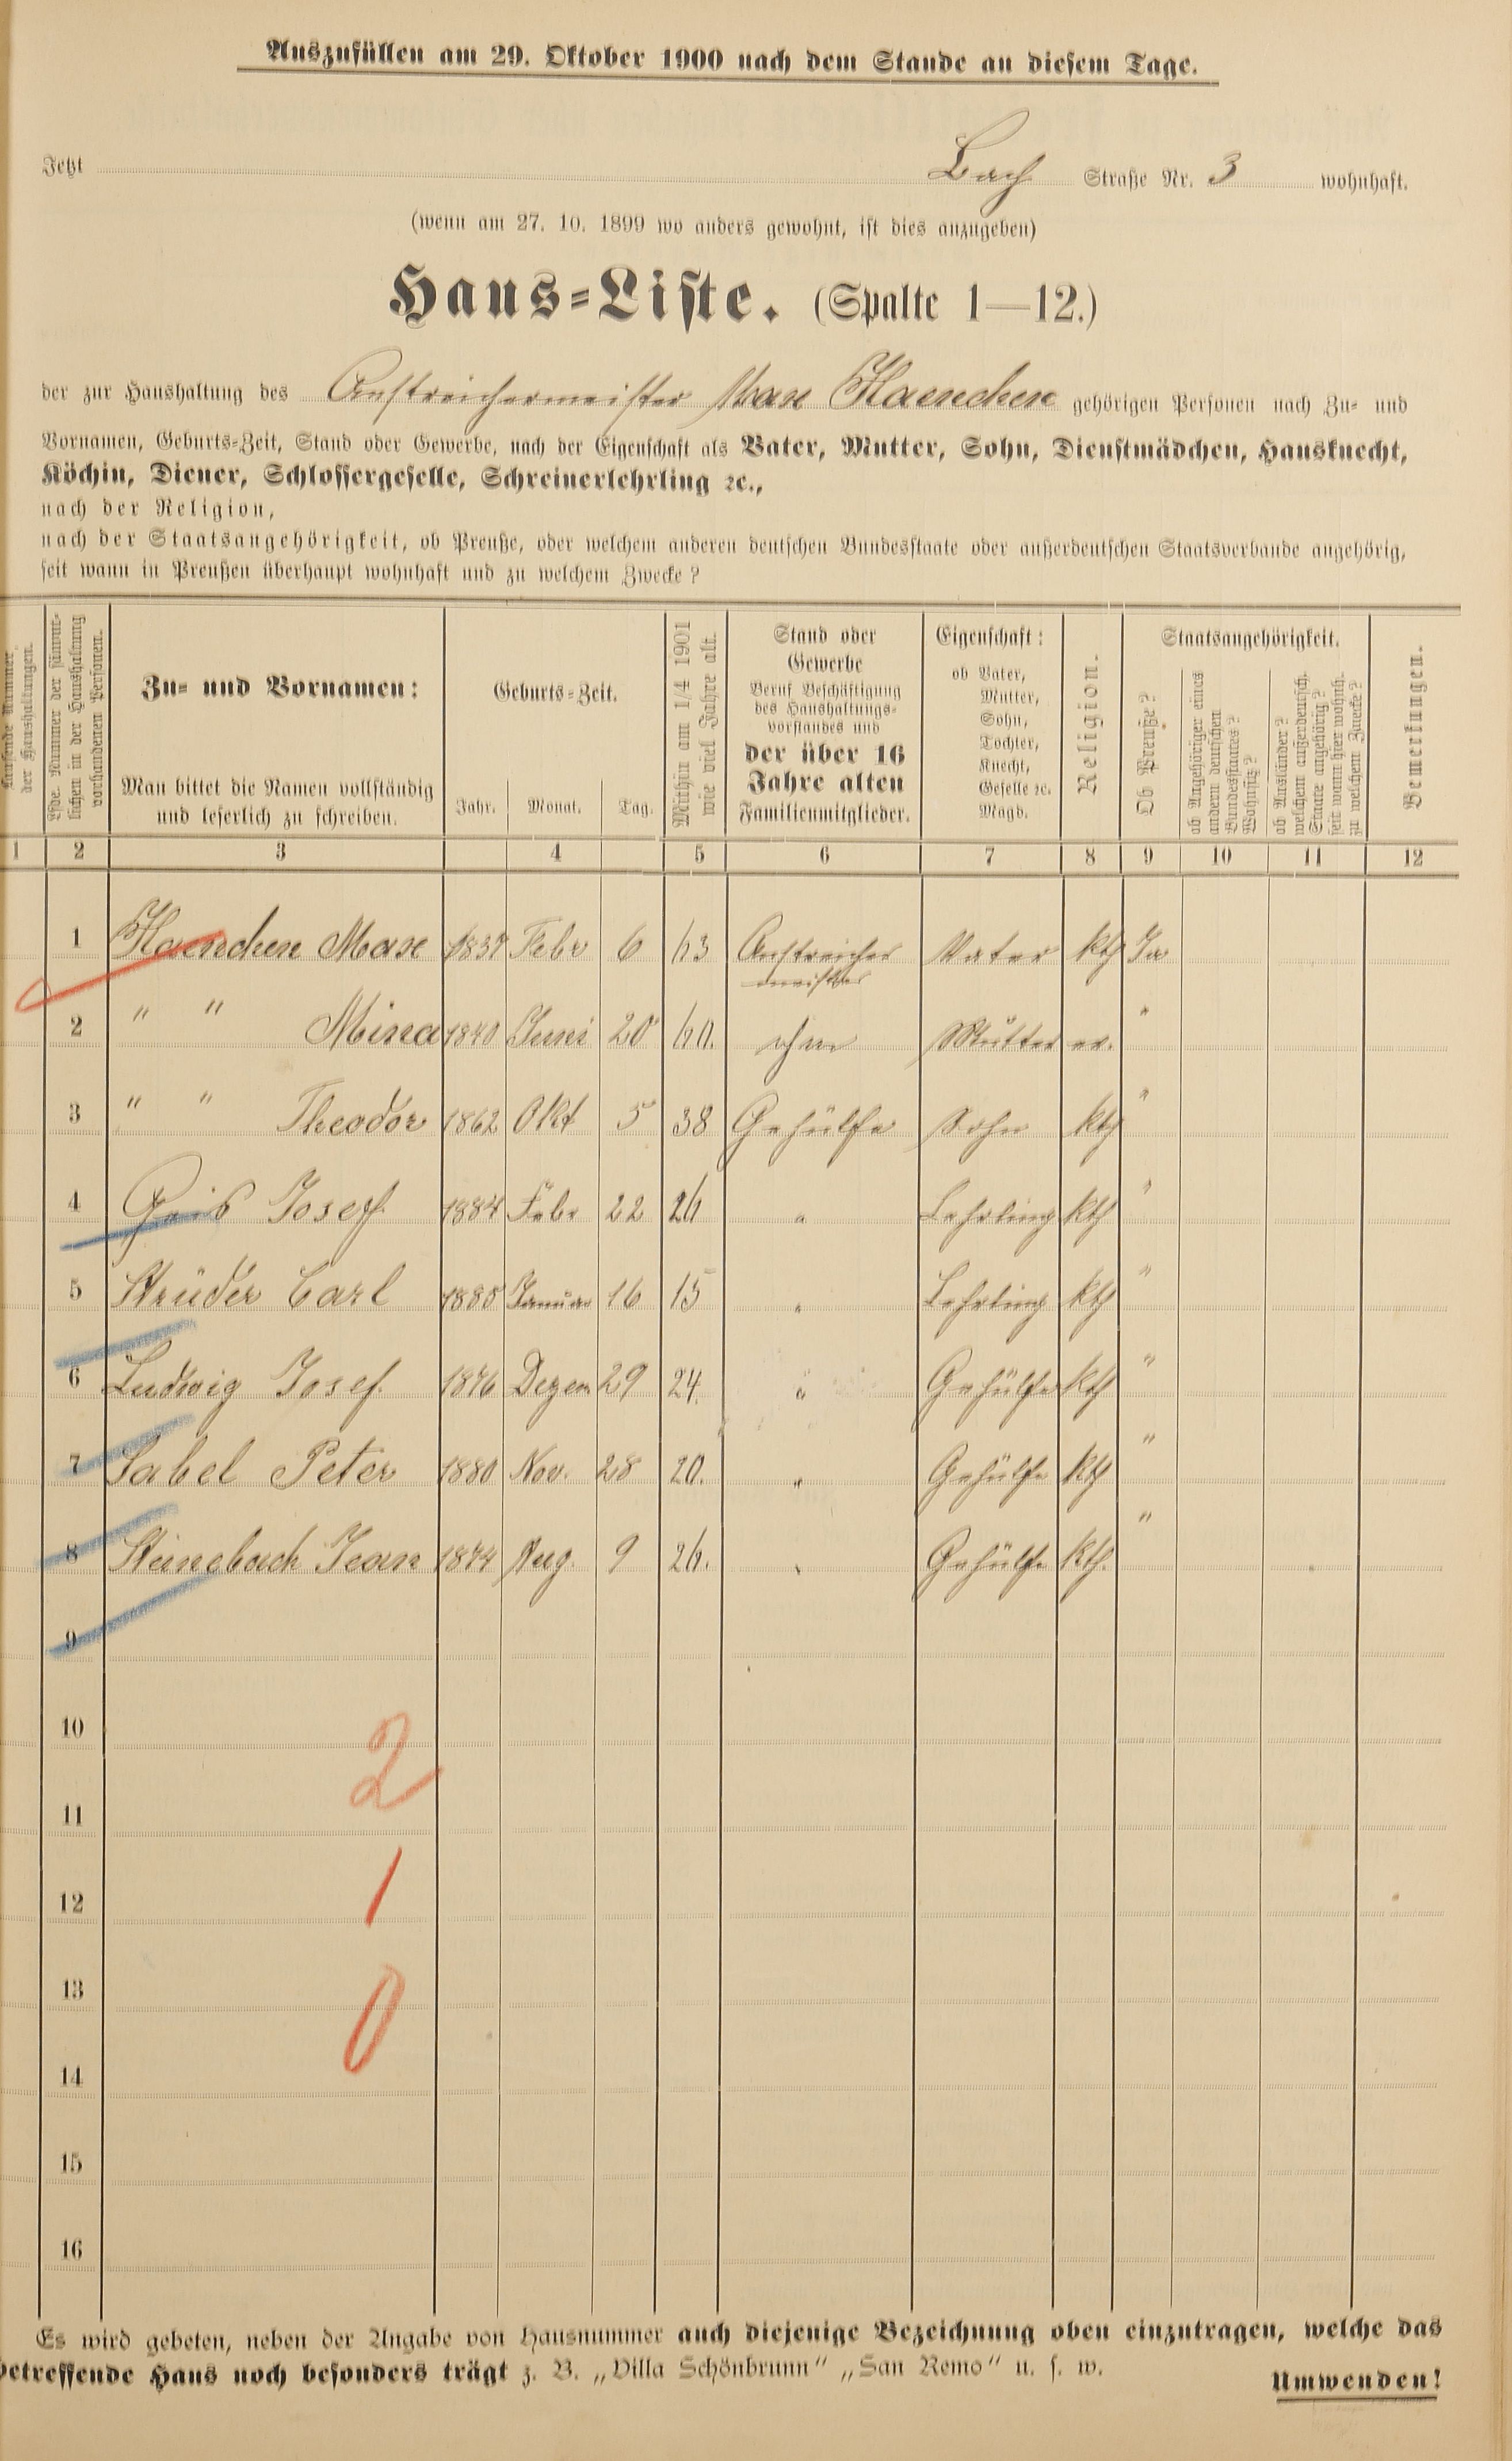 Auszufüllen am 29. Oktober 1900 nach dem Stande an diesem Tage.
Jetzt Bach Straße Nr. 3 wohnhaft.
(wenn am 27. 10. 1899 wo anders gewohnt, ist dies anzugeben)
Haus-Liste. (Spalte 1—12.)
der zur Haushaltung des Anstreichermeister Max Haenchen gehörigen Personen nach Zu- und
Vornamen, Geburts-Zeit, Stand oder Gewerbe, nach der Eigenschaft als Vater, Mutter, Sohn, Dienstmädchen, Hausknecht,
Köchin, Diener, Schlossergeselle, Schreinerlehrling ꝛc.,
nach der Religion,
nach der Staatsangehörigkeit, ob Preuße, oder welchem anderen deutschen Bundesstaate oder außerdeutschen Staatsverbande angehörig,
seit wann in Preußen überhaupt wohnhaft und zu welchem Zwecke?
Laufende Nummer
der Haushaltungen.
Lfde. Nummer der sämmt-
lichen in der Haushaltung
vorhandenen Personen.
Zu- und Vornamen:
Man bittet die Namen vollständig
und leserlich zu schreiben.
Geburts-Zeit.
Jahr. Monat. Tag.
Mithin am 1/4 1901
wie viel Jahre alt.
Stand oder
Gewerbe
Beruf Beschäftigung
des Haushaltungs-
vorstandes und
der über 16
Jahre alten
Familienmitglieder.
Eigenschaft:
ob Vater,
Mutter,
Sohn,
Tochter,
Knecht,
Geselle ꝛc.
Magd.
Religion.
Staatsangehörigkeit.
Ob Preuße?
ob Angehöriger eines
andern deutschen
Bundesstaates?
Wohnsitz?
ob Ausländer?
welchem außerdeutsch.
Staate angehörig?
seit wann hier wohnh.
zu welchem Zwecke?
Bemerkungen.
1 2 3 4 5 6 7 8 9 10 11 12
1 Haenchen Max 1837 Febr 6 63 Anstreicher Vater kth Ja
meister
2 " " Mina 1840 Juni 20 60. ohne Mutter ev. "
3 " " Theodor 1862 Okt 5 38 Gehülfe Sohn kth "
4 Josef 1884 Febr 22 " Lehrling kth "
5 Strüder Carl 1885 Januar 16 15 " Lehrling kth "
6 Ludwig Josef 1876 Dezem 29 24. " Gehülfe kth "
7 Sabel Peter 1880 Nov. 28 20. " Gehülfe kth "
8 Steinebach Jean 1874 Aug. 9 26. " Gehülfe kth. "
9
10
2
11
12
1
13
0
14
15
16
Es wird gebeten, neben der Angabe von Hausnummer auch diejenige Bezeichnung oben einzutragen, welche das
betreffende Haus noch besonders trägt z. B. „Villa Schönbrunn" „San Remo" u. s. w.
Umwenden!